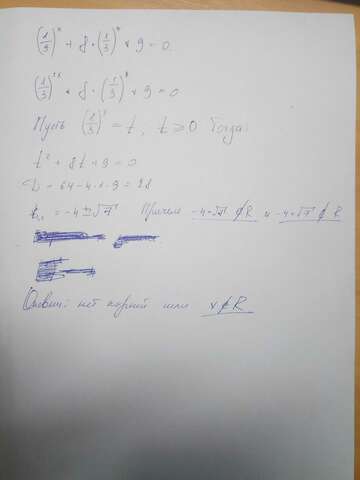 (1/9)^x + 8·(1/3)^x + 9 = 0.
(1/3)^2x + 8·(1/3)^x + 9 = 0
Пусть (1/3)^x = t, t ⩾ 0 Тогда:
t² + 8t + 9 = 0
D = 64 - 4·1·9 = 28
t₁,₂ = -4 ± √7 Причём -4-√7 ∉ R и -4+√7 ∉ R
Ответ: нет корней или x ∉ R